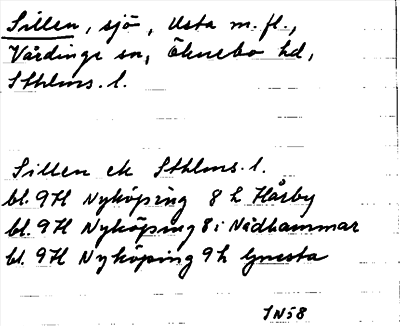 Sillen, sjö, Usta m.fl.,
Vårdinge sn, Öknebo hd,
Sthlms. l.
Sillen ek Sthlms. l.
bl. 9H Nyköping 8 h Håsby
bl. 9H Nyköping 8 i Nådhammar
bl. 9H Nyköping 9 h Gnesta